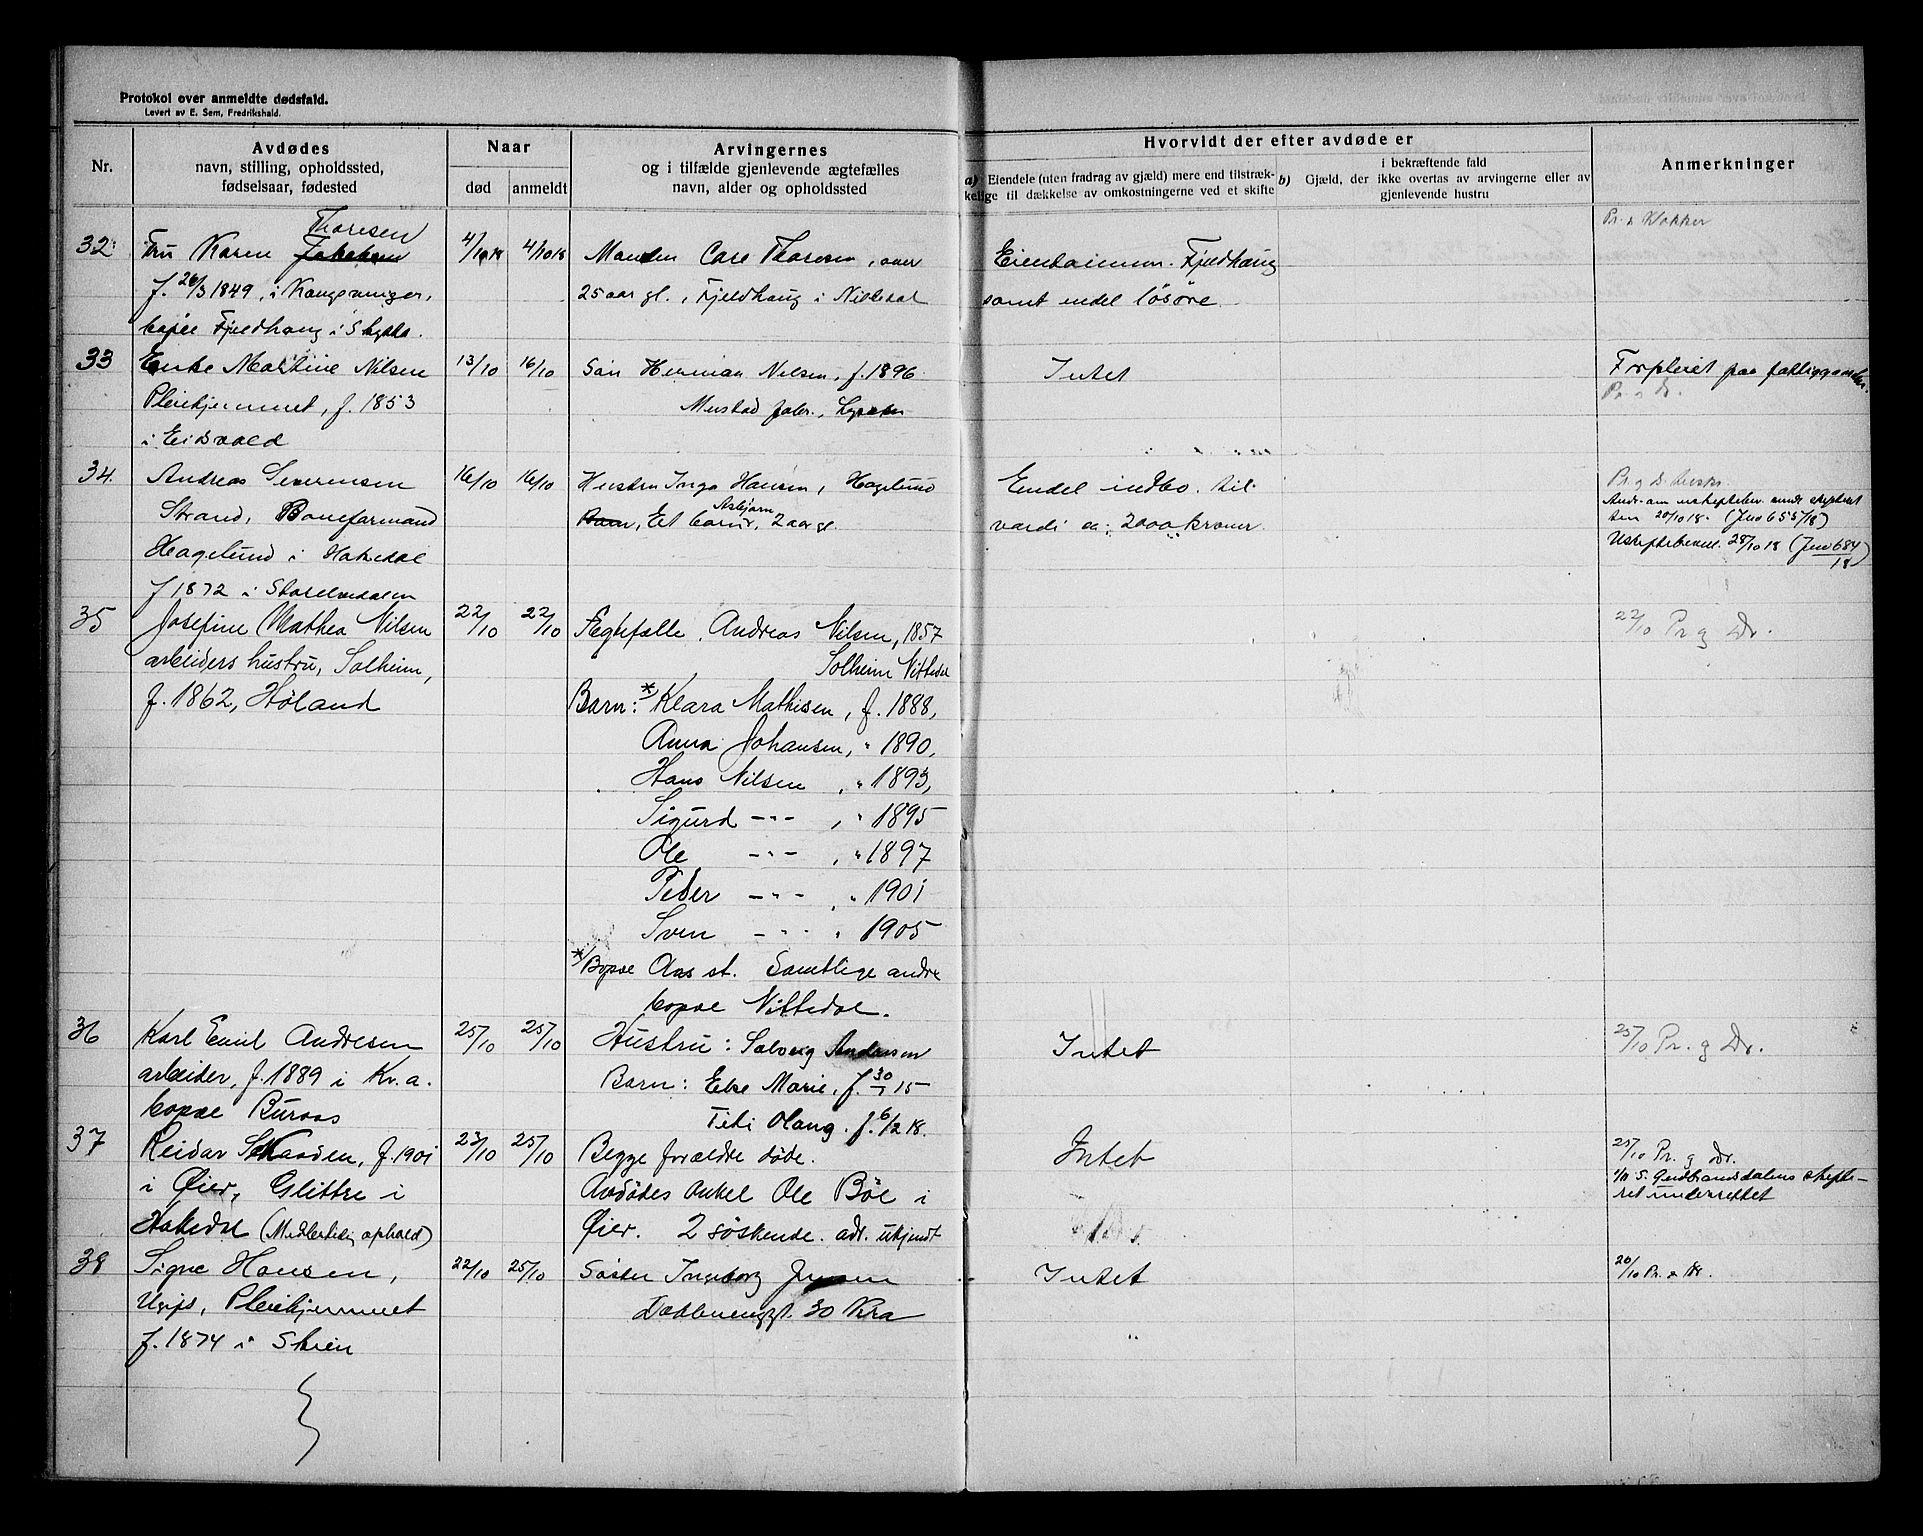 Protokol over anmeldte dødsfald.
Levert av E. Sem, Fredrikshald.
Nr.
Avdødes
navn, stilling, opholdssted,
fødselsaar, fødested
Naar
død
anmeldt
Arvingernes
og i tilfælde gjenlevende ægtefælles
navn, alder og opholdssted
Hvorvidt der efter avdøde er
a) Eiendele (uten fradrag av gjæld) mere end tilstræk-
kelige til dækkelse av omkostningerne ved et skifte
i bekræftende fald
b) Gjæld, der ikke overtas av arvingerne eller av
gjenlevende hustru
Anmerkninger
32
Thoresen
Fru Karen
f. 26/3 1849, i Kongsvinger,
bopæl Fjeldhaug i Skytta.
4/10 18
4/10 18
Manden Carl Thoresen, over
25 aar gl., Fjeldhaug i Nittedal
Eiendommen Fjeldhaug
samt endel løsøre.
33
Enke Martine Nilsen
Pleiehjemmet, f. 1853
i Eidsvold
13/10
16/10
Søn Herman Nilsen, f. 1896
Mustad fabr., Lysaker
Intet
Forpleiet paa fattigvæsenet.
Pr. & Dr.
34.
Andreas Severinsen
Strand, Bonefarmand
Hagelund i Hakedal
f 1872 i Storelvedalen
16/10
16/10
Hustru Inga Hansen, Hagelund
Asbjørn
Barn, Et barn, 2 aar gl.
Endel indbo til
værdi ca. 2000 kroner
ten 20/10 18. (Jno 655/18)
Uskiftebevil. 28/10 18 (Jno 684/18)
35
Josefine Mathea Nilsen
arbeiders hustru, Solheim,
f. 1862, Høland
22/10
22/10
Ægtefælle, Andreas Nilsen, 1857
Solheim Nittedal
Barn: * Klara Mathisen, f. 1888,
Anna Johansen, " 1890,
Hans Nilsen, " 1893,
Sigurd -"- , " 1895
Ole -"- , " 1897
Peder -"- , " 1901
Sven -"- " 1905
*) Bopæl Aas st. Samtlige andre
bopæl Nittedal.
22/10 Pr. g Dr.
36
Karl Emil Andresen
arbeider, f. 1889 i Kr.a.
bopæl Buraas
25/10
25/10
Hustru: Solveig Andresen
Barn: Else Marie, f. 30/7 15
f. 6/2 18.
Intet
25/10 Pr. g Dr.
37
Reidar Skaaden, f. 1901
i Øier, Glittre i
Hakedal (Midlertidig ophold)
23/10
25/10
Begge forældre døde.
Avdødes onkel Ole Böe i
Øier. 2 søskende. adr. ukjendt
Intet
25/10 Pr. g Dr.
1/11 S. Gudbrandsdalens skifte-
ret underrettet
38
Signe Hansen,
Ugift, Pleiehjemmet
f. 1874 i Skien
22/10
25/10
Søster Ingeborg Jensen
30 Kra
Intet
20/10 Pr. & Dr.